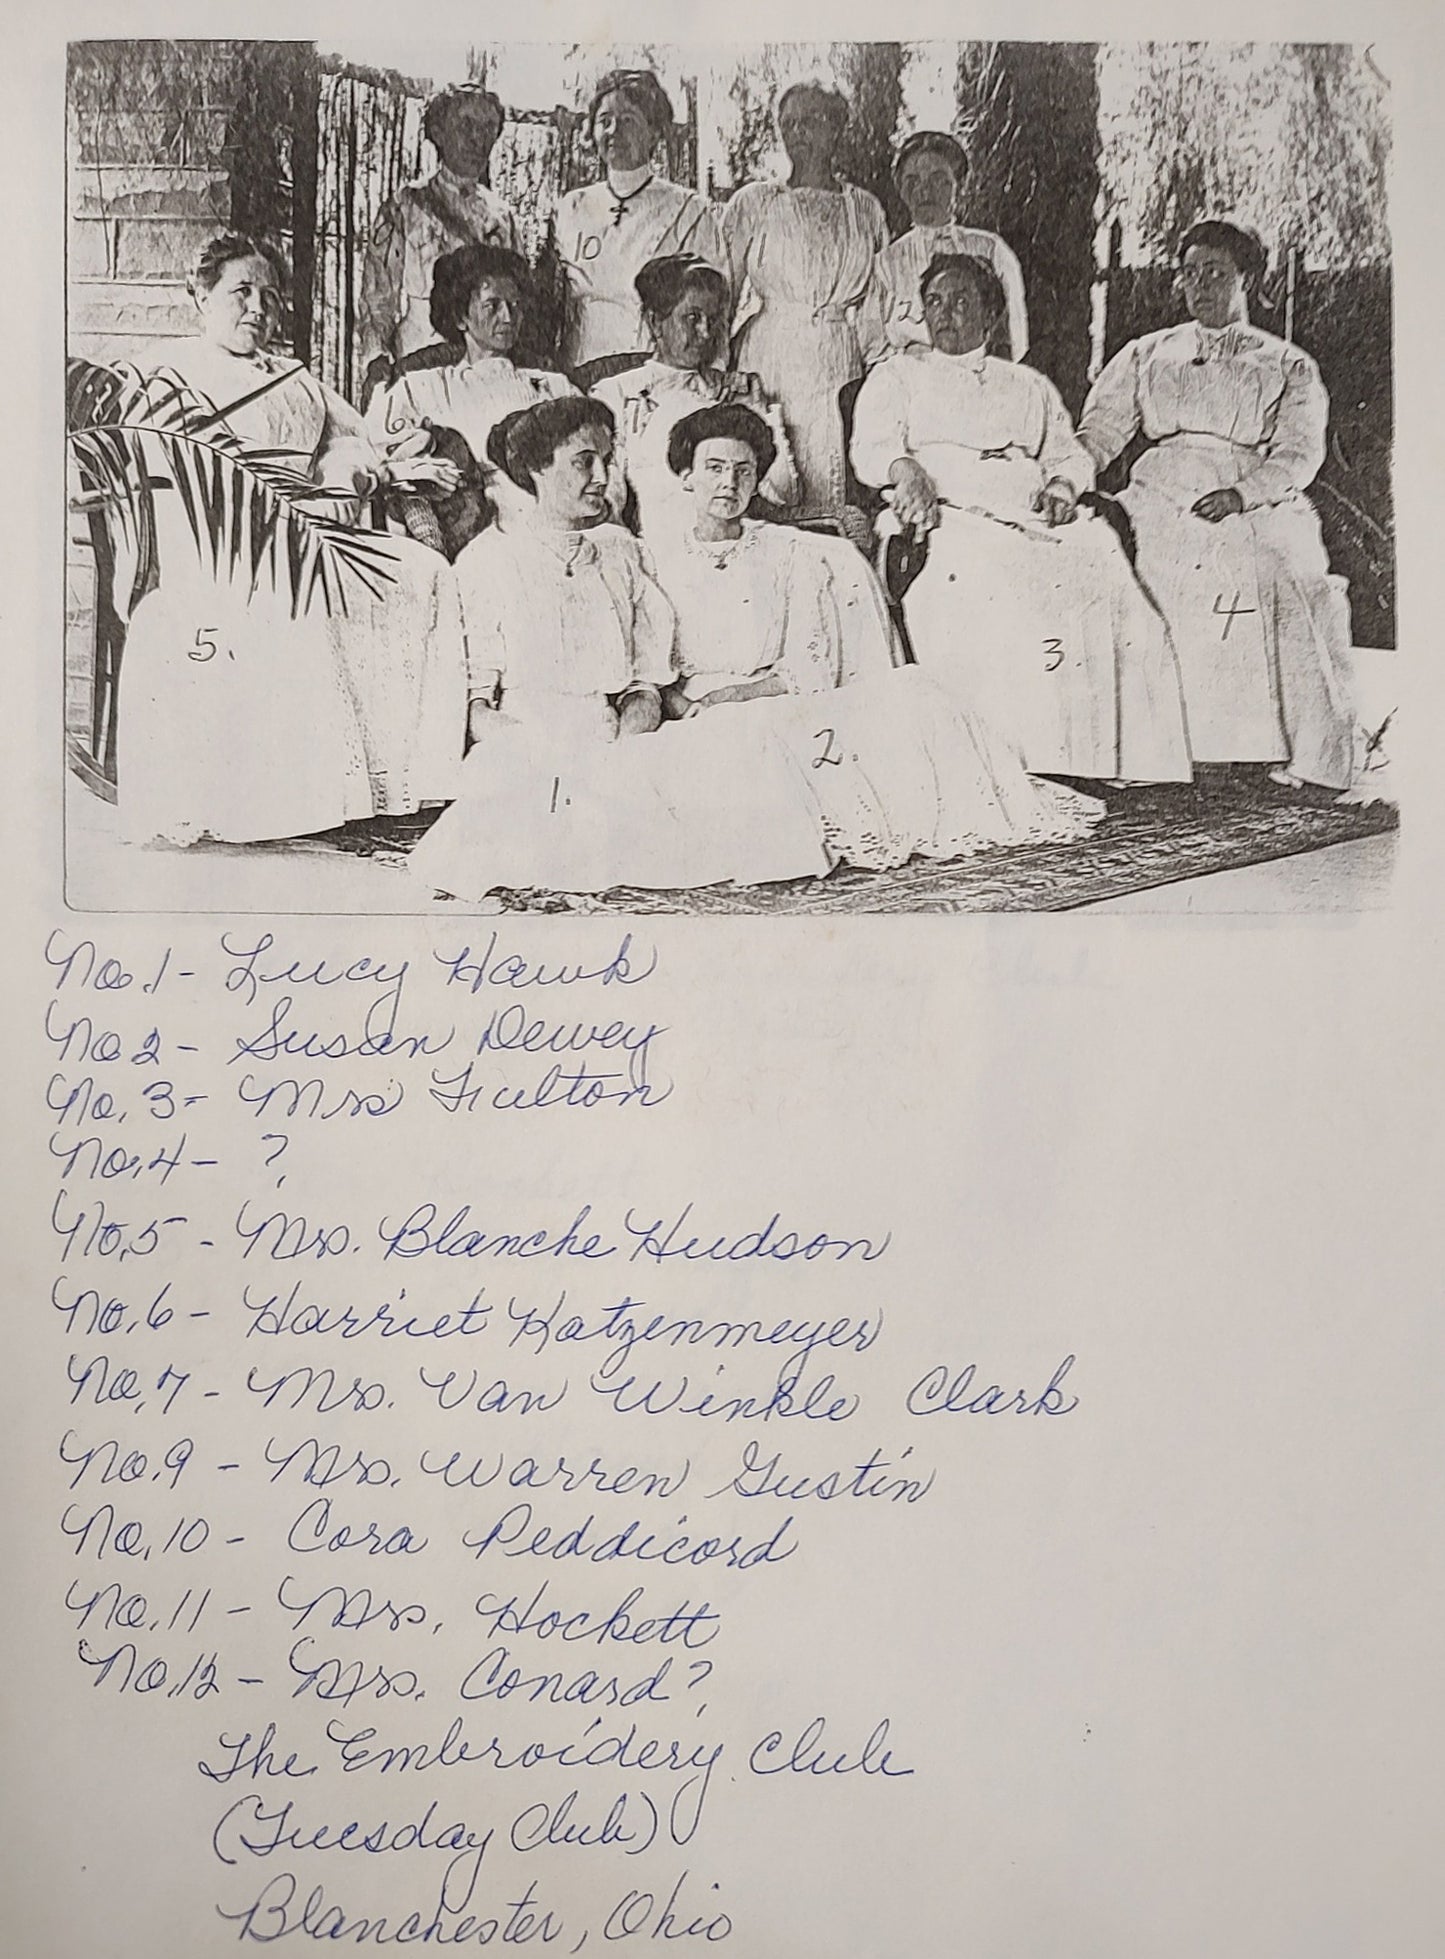 9.
10
11
12
6
5.
4
3.
2.
1.
No. 1 - Lucy Hawk
No 2 - Susan Dewey
No. 3 - Mrs Fulton
No. 4 - ?
No. 5 - Mrs. Blanche Hudson
No. 6 - Harriet Katzenmeyer
No. 7 - Mrs. Van Winkle Clark
No. 9 - Mrs. Warren Gustin
No. 10 - Cora Peddicord
No. 11 - Mrs. Hockett
No. 12 - Mrs. Conard?
The Embroidery Club
(Tuesday Club)
Blanchester, Ohio